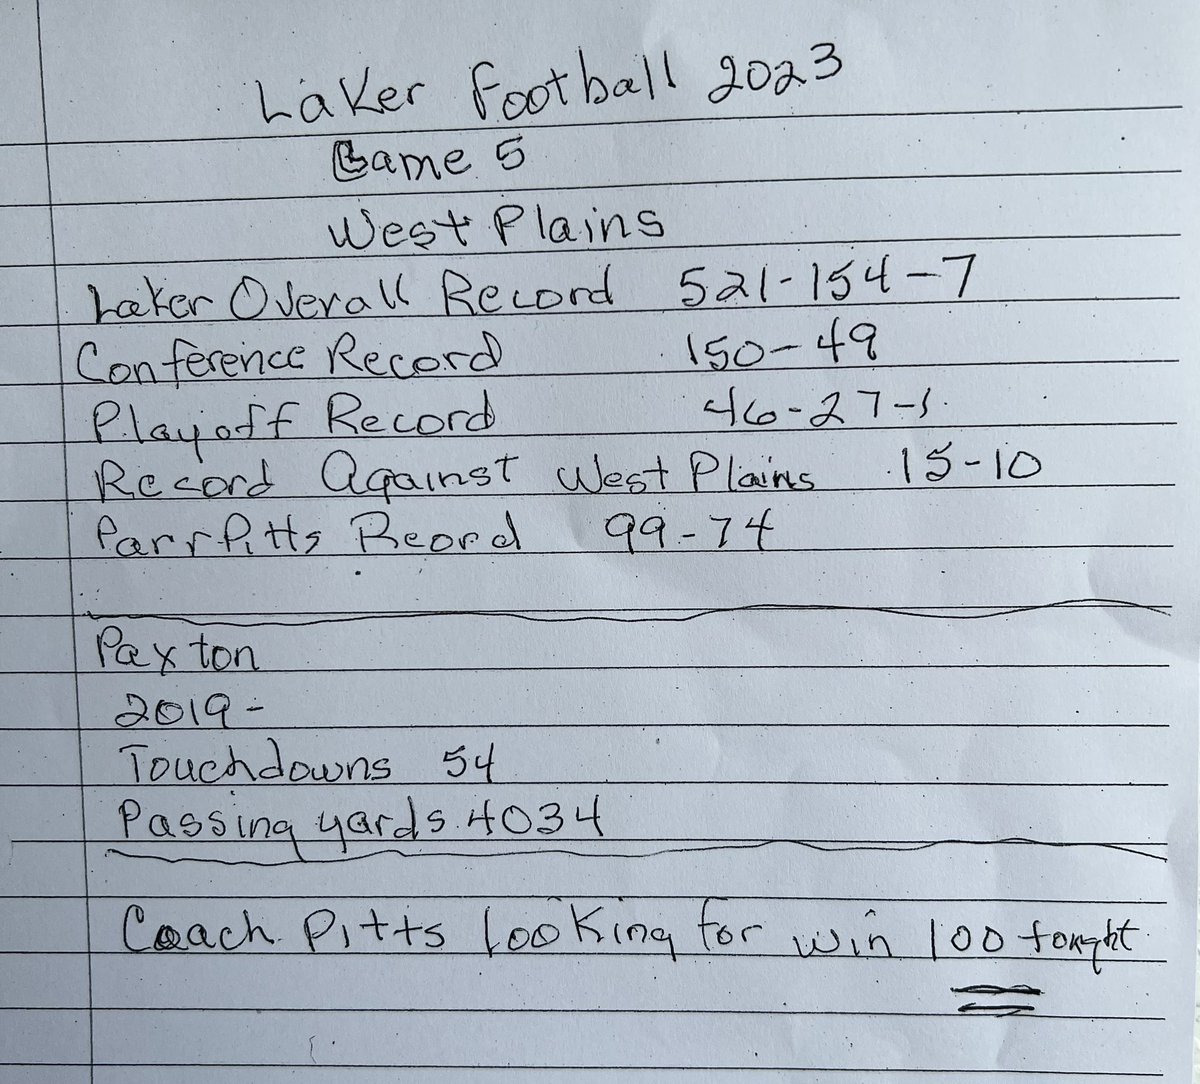 Laker Football 2023
Game 5
West Plains
Laker Overall Record 521-154-7
Conference Record 150-49
Playoff Record 46-27-1
Record Against West Plains 15-10
Parr Pitts Reord 99-74
Paxton
2019-
Touchdowns 54
Passing yards 4034
Coach Pitts looking for win 100 tonght